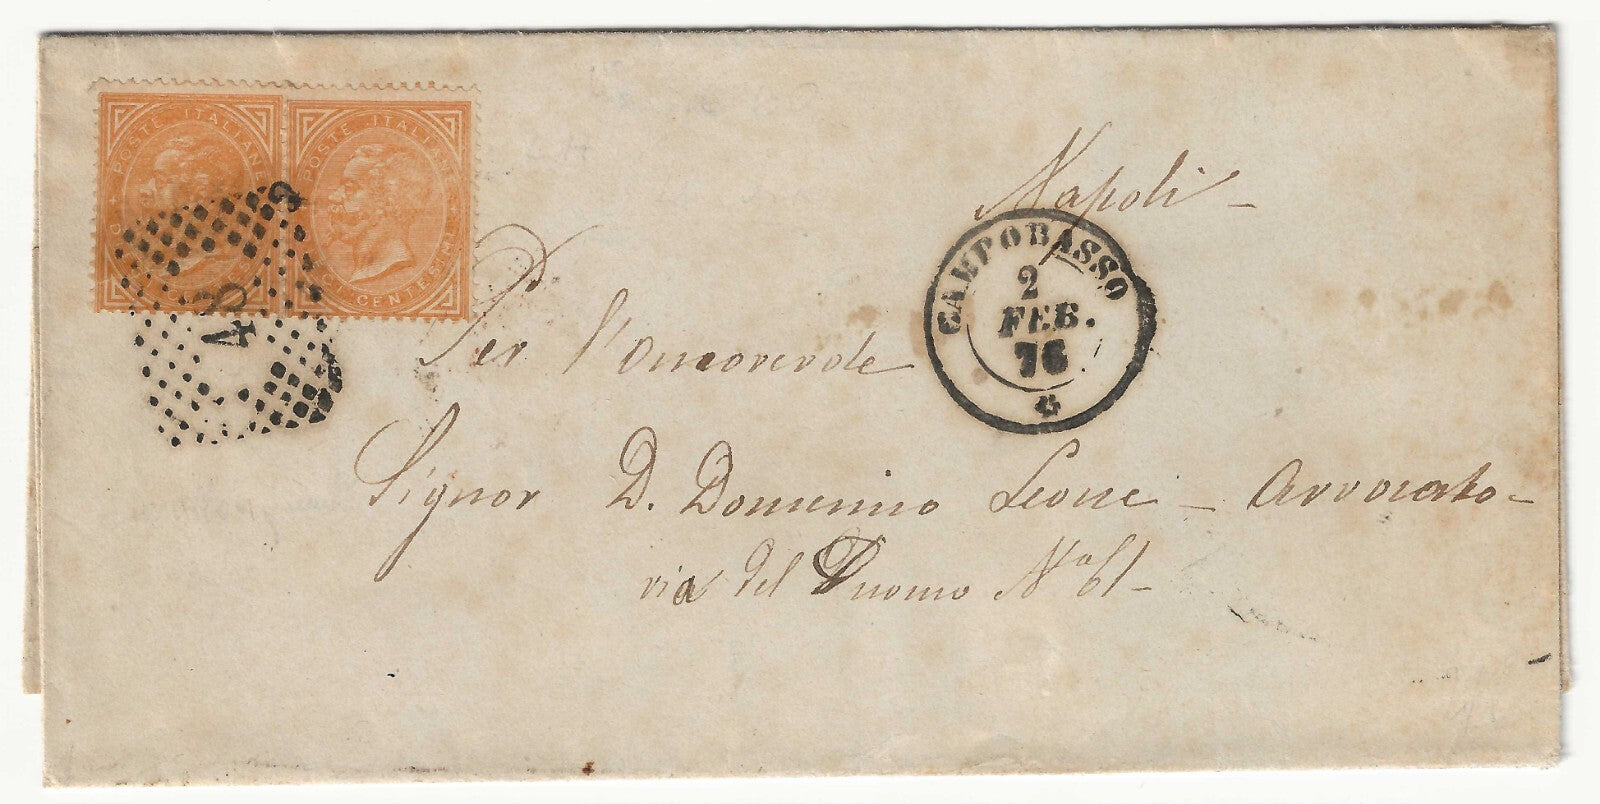 POSTE ITALIANE
POSTE ITALIANE
CENTESIMI
48
Napoli -
CAMPOBASSO
2
FEB.
76
6
Per l'Onorevole
Signor D. Domenico Leone - Avvocato -
via del Duomo Nº 61 -